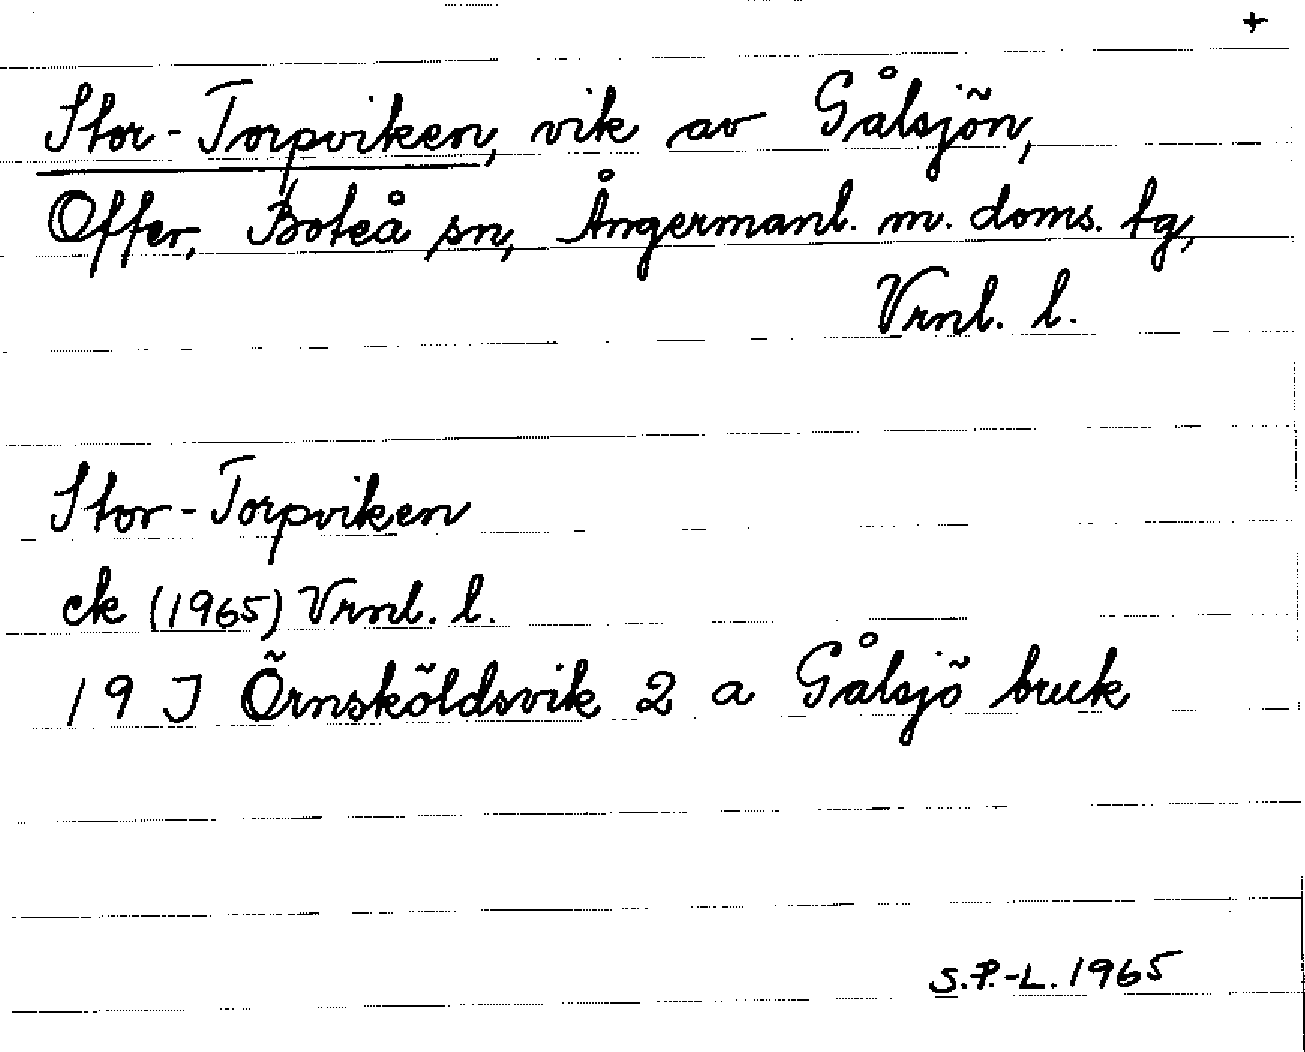 +
Stor-Torpviken, vik av Gålsjön,
Offer, Boteå sn, Ångermanl. m. doms. tg,
Vrnl. l.
Stor-Torpviken
ek (1965) Vrnl. l.
19 J Örnsköldsvik 2 a Gålsjö bruk
S.P.-L. 1965